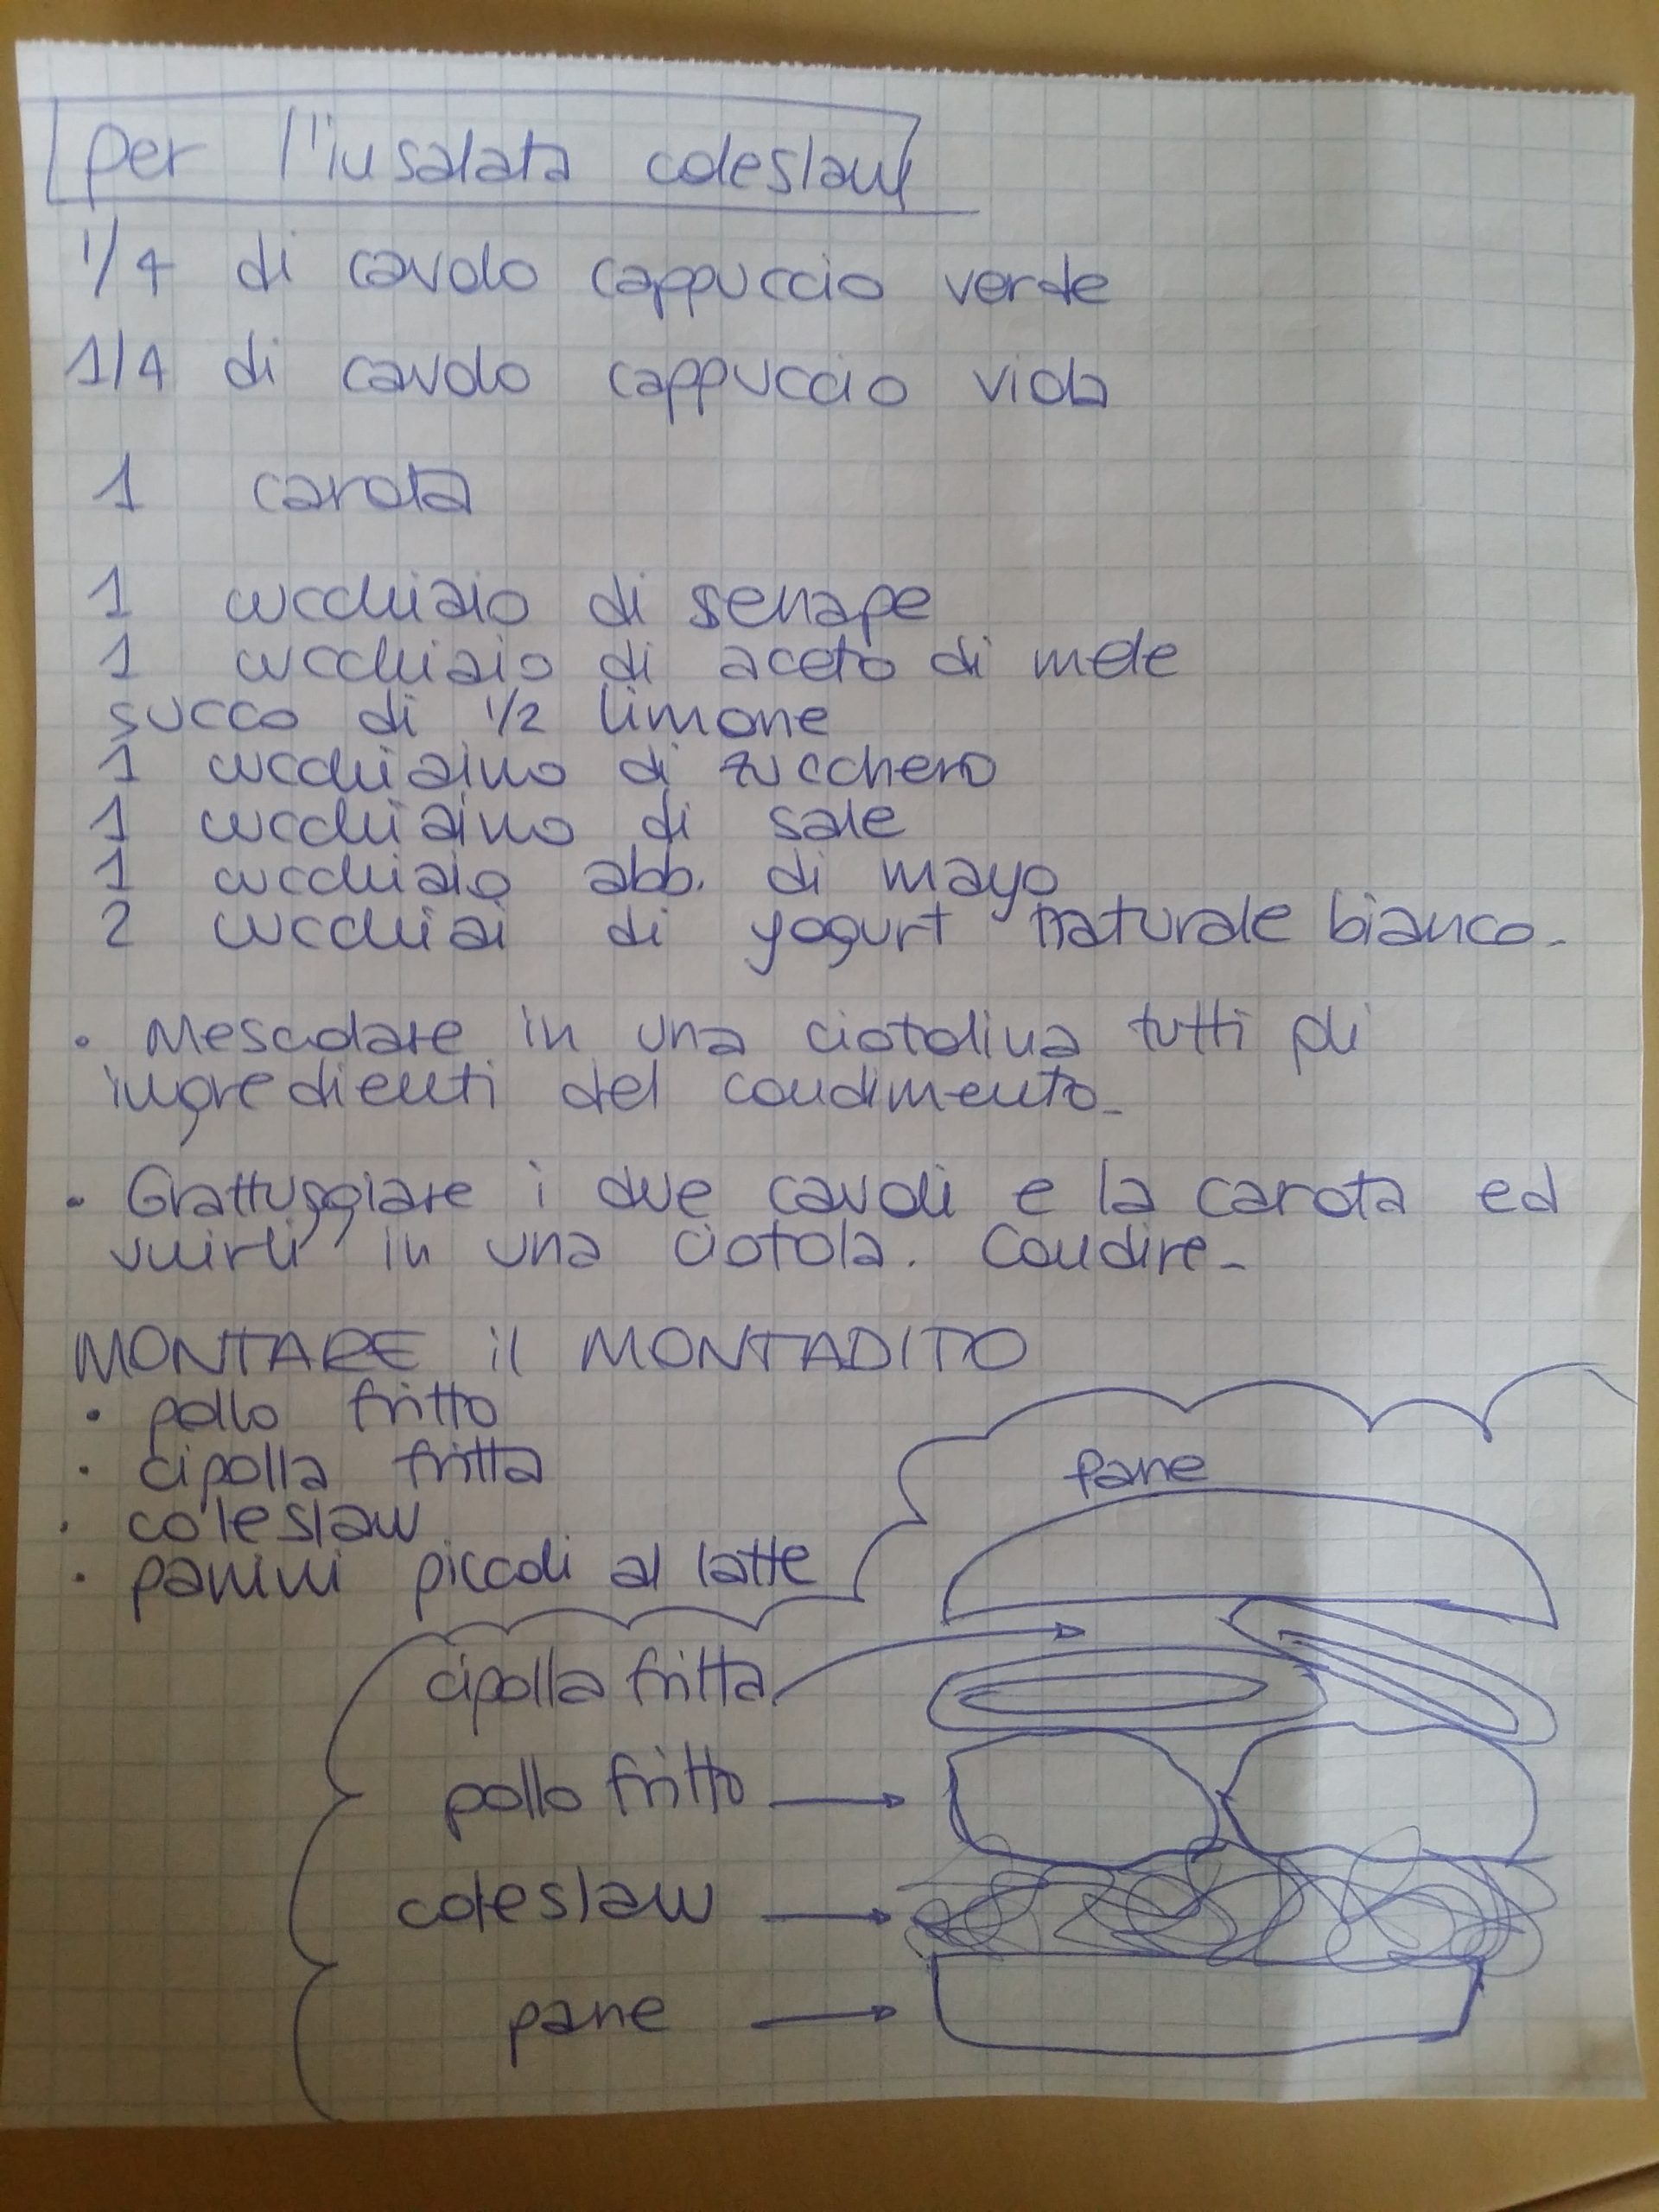 per l'insalata coleslaw
1/4 di cavolo cappuccio verde
1/4 di cavolo cappuccio viola
1 carota
1 cucchiaio di senape
1 cucchiaio di aceto di mele
succo di 1/2 limone
1 cucchiaino di zucchero
1 cucchiaino di sale
1 cucchiaio abb. di mayo
2 cucchiai di yogurt naturale bianco.
• Mescolare in una ciotolina tutti gli
ingredienti del condimento.
• Grattuggiare i due cavoli e la carota ed
unirli in una ciotola. Condire.
MONTARE il MONTADITO
• pollo fritto
• cipolla fritta
• coleslaw
• panini piccoli al latte
pane
cipolla fritta
pollo fritto
coleslaw
pane